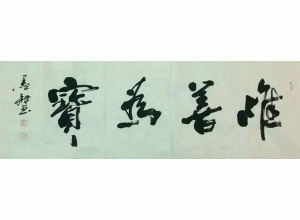 惟善為寶